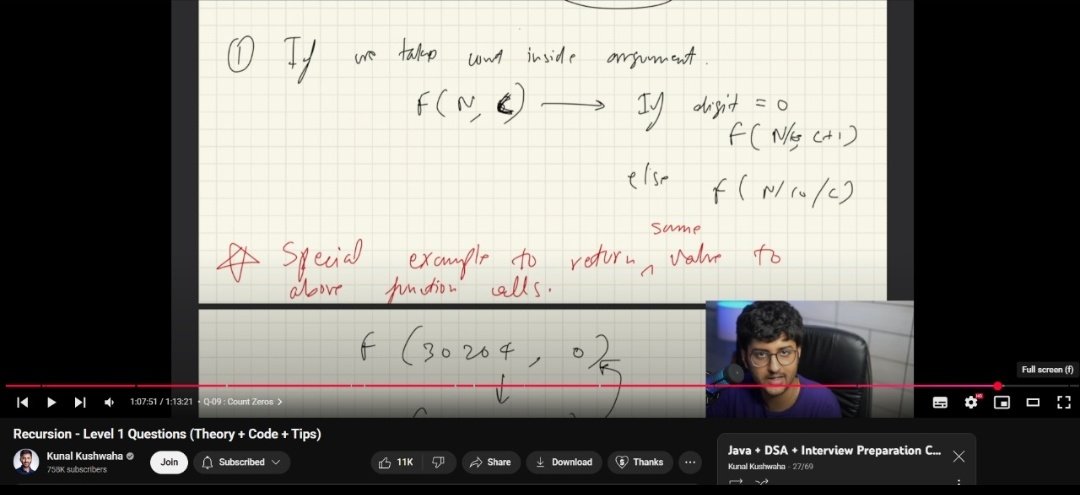 ① If we take count inside argument.
F(N, C) → If digit = 0
F(N/10, C+1)
else f(N/10, C)
same
☆ Special example to return ^ value to
above function calls.
f (30204, 0)
Full screen (f)
1:07:51 / 1:13:21 • Q-09 : Count Zeros >
HD
Recursion - Level 1 Questions (Theory + Code + Tips)
Kunal Kushwaha
758K subscribers
Join
Subscribed
11K
Share
Download
Thanks
Java + DSA + Interview Preparation C...
Kunal Kushwaha - 27/69